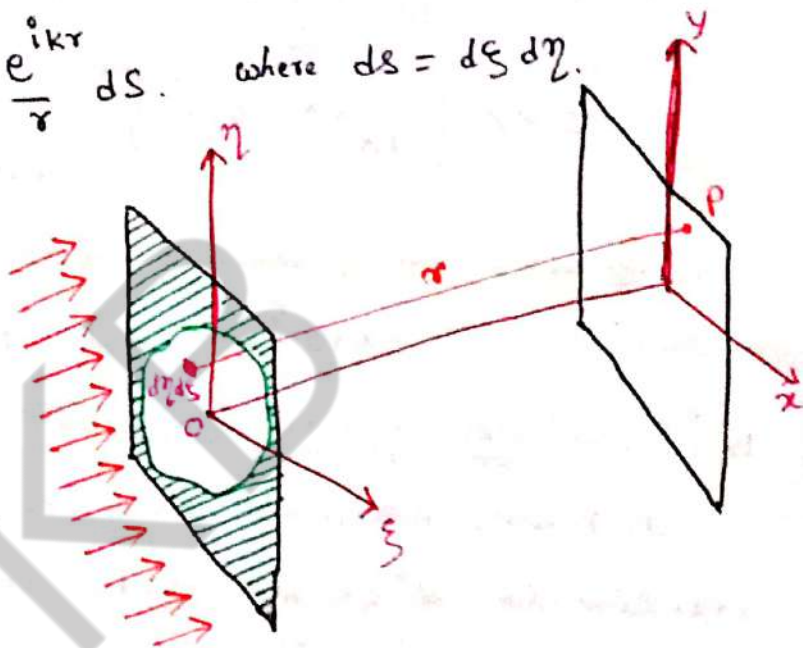 e^{ikr}/r dS. where ds = dξ dη.
y
η
P
r
dηdξ
O
x
ξ